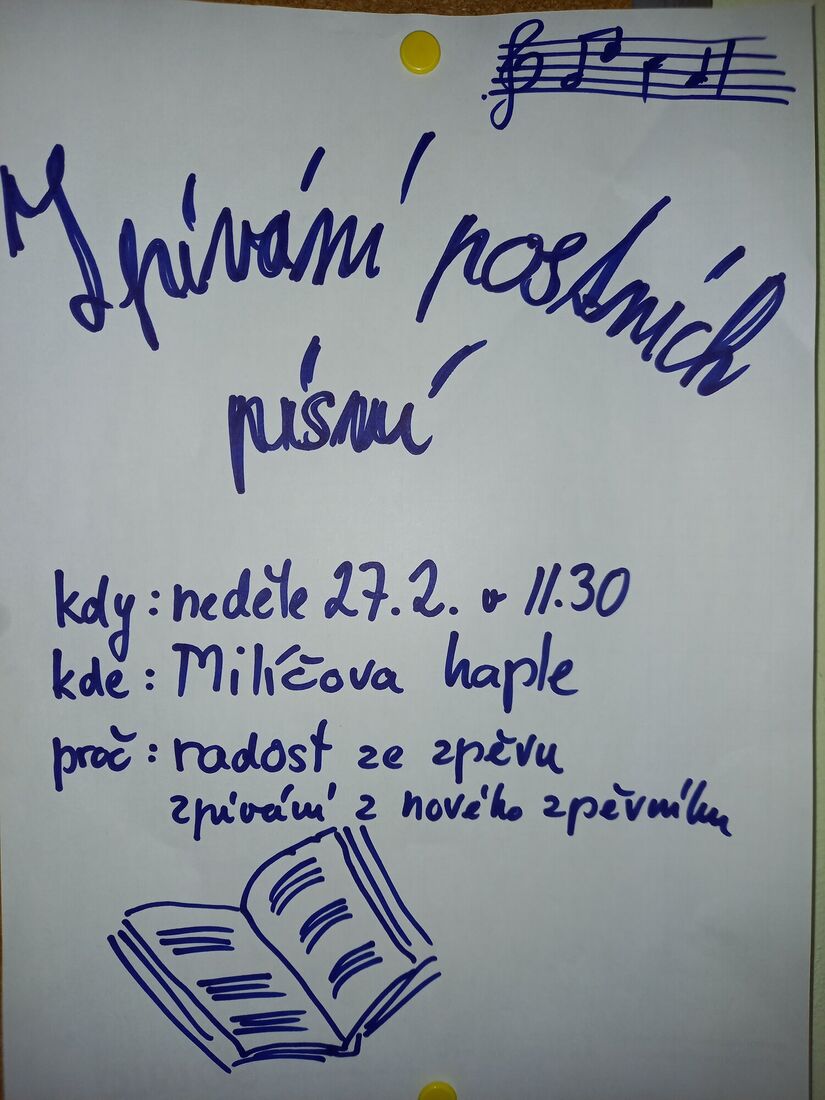 Zpívání postních
písní
kdy: neděle 27.2. v 11.30
kde: Milíčova kaple
proč: radost ze zpěvu
zpívání z nového zpěvníku